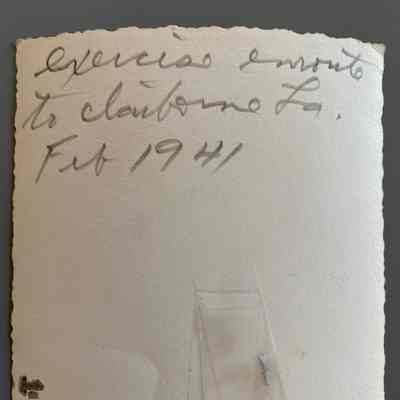 exercise enroute
to Claiborne La.
Feb 1941